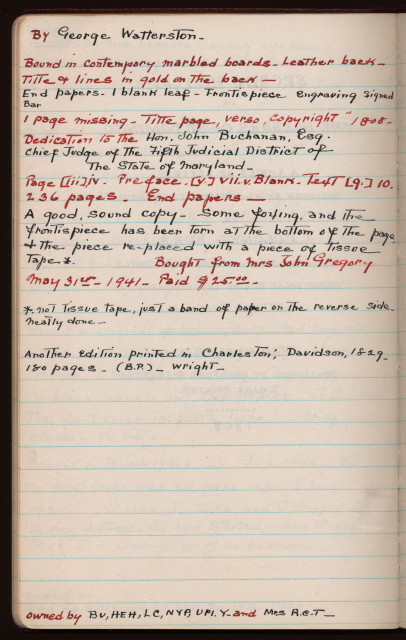 By George Watterston-
Bound in contempory marbled boards- Leather back-
Title & lines in gold on the back-
End papers- 1 blank leaf- Frontispiece engraving signed
Bar
1 page missing- Title page, verso, copyright "1808-
Dedication to the Hon. John Buchanan, Esq.
Chief Judge of the Fifth Judicial District of
The State of Maryland-
Page [iii]iv- Preface- [v] vii. v. Blank- Text [9.] 10.
236 pages- End papers-
A good, sound copy- Some foxing, and the
frontispiece has been torn at the bottom of the page,
& the piece re-placed with a piece of tissue
Tape*. Bought from Mrs John Gregory
May 31st- 1941- Paid $25.00-
*. not tissue tape, just a band of paper on the reverse side-
neatly done-
Another edition printed in Charleston; Davidson, 1829-
180 pages- (B.P.)- Wright-
owned by BU, HEH, LC, NYP, UPI. Y- and Mrs R.C.T-